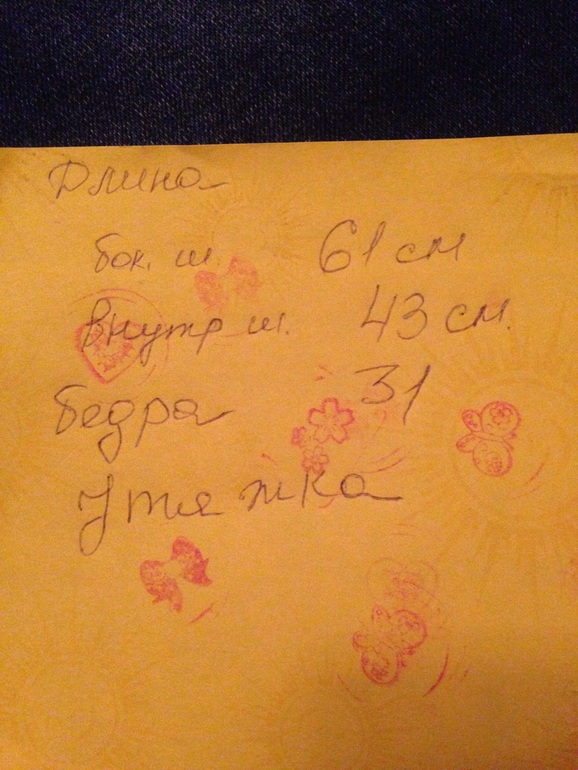 Длина
бок. ш. 61 см
внутр ш. 43 см.
бедра 31
Утяжка